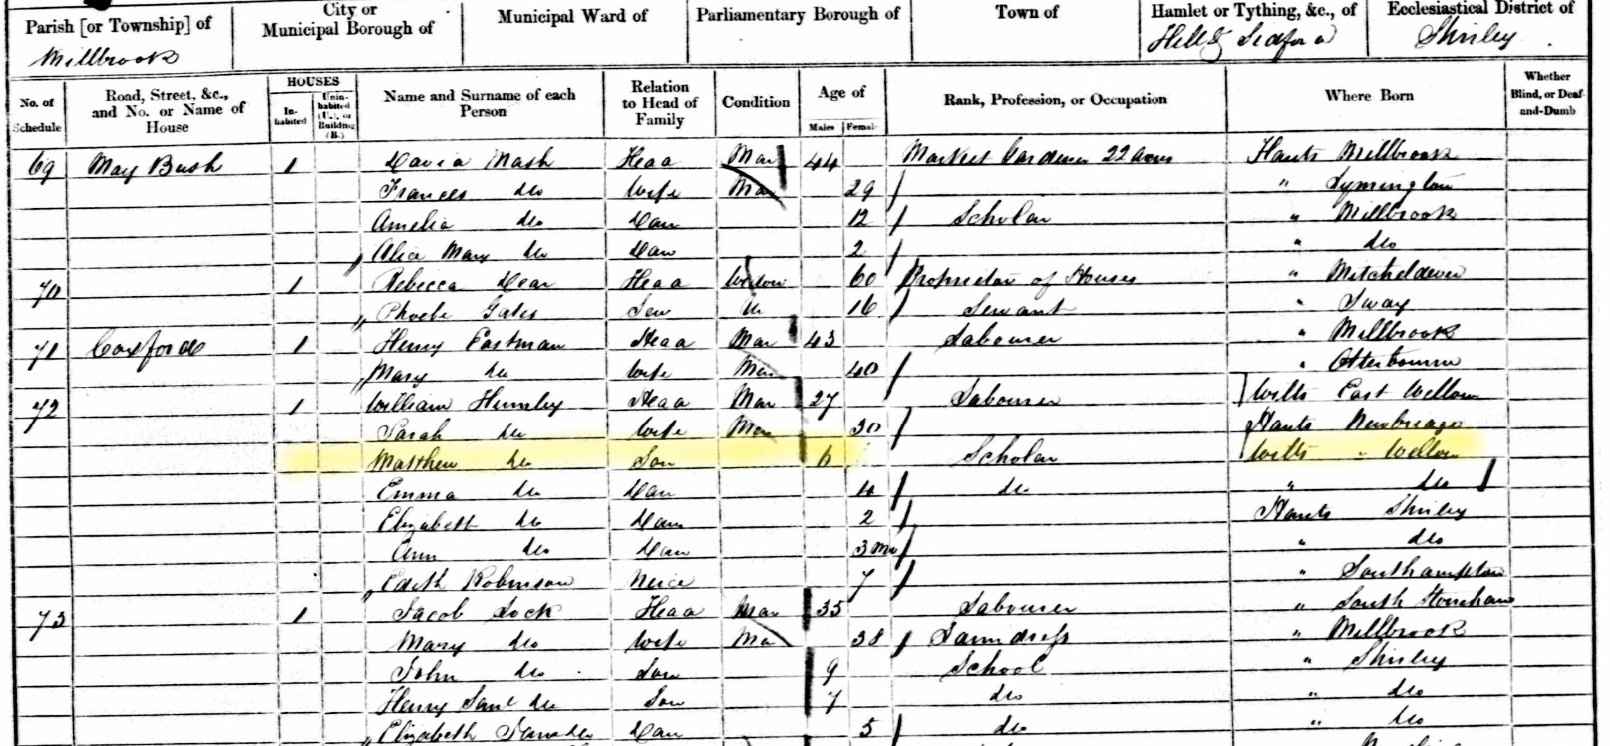 Parish [or Township] of Millbrook
City or Municipal Borough of
Municipal Ward of
Parliamentary Borough of
Town of
Hamlet or Tything, &c., of Hill & Sidford
Ecclesiastical District of Shirley
No. of Schedule
Road, Street, &c., and No. or Name of House
HOUSES
In-habited
Unin-habited (U.), or Building (B.)
Name and Surname of each Person
Relation to Head of Family
Condition
Age of
Males Females
Rank, Profession, or Occupation
Where Born
Whether Blind, or Deaf-and-Dumb
69 May Bush 1 David Nash Head Mar 44 Market Gardener 22 acres Hants Millbrook
Frances do Wife Mar 29 " Lymington
Amelia do Daur 12 Scholar " Millbrook
Alice Mary do Daur 2 " do
70 1 Rebecca Dear Head Widow 60 Proprietor of Houses " Mitcheldever
Phoebe Gates Serv Un 16 Servant " Sway
71 Coxford 1 Henry Eastman Head Mar 43 Labourer " Millbrook
Mary do Wife Mar 40 " Otterbourne
72 1 William Head Mar 27 Labourer Wilts East Wellow
Sarah do Wife Mar 30 Hants Newbridge
Matthew do Son 6 Scholar Wilts " Wellow
Emma do Daur 4 do " do
Elizabeth do Daur 2 Hants Shirley
Ann do Daur 3 Mo " do
Edith Robinson Neice 7 " Southampton
73 1 Jacob Lock Head Mar 35 Labourer " South Stoneham
Mary do Wife Mar 38 Laundress " Millbrook
John do Son 9 School " Shirley
Henry Saml do Son 7 do " do
Elizabeth do Daur 5 do " do